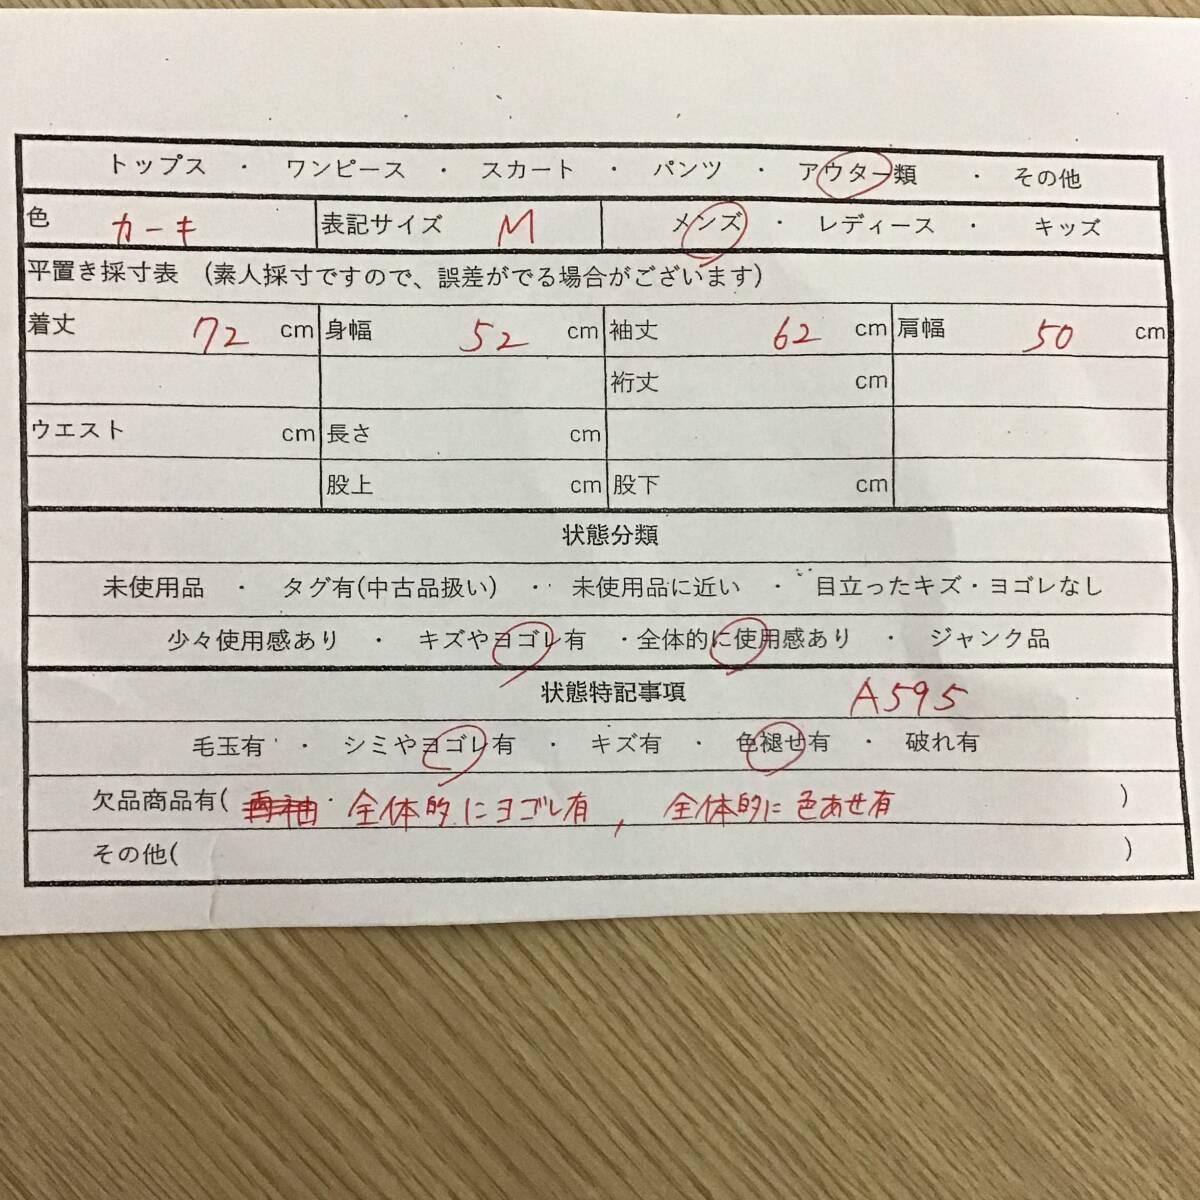 トップス ・ ワンピース ・ スカート ・ パンツ ・ アウター類 ・ その他
色 カーキ 表記サイズ M メンズ ・ レディース ・ キッズ
平置き採寸表 (素人採寸ですので、誤差がでる場合がございます)
着丈 72 cm 身幅 52 cm 袖丈 62 cm 肩幅 50 cm
裄丈 cm
ウエスト cm 長さ cm
股上 cm 股下 cm
状態分類
未使用品 ・ タグ有(中古品扱い) ・ 未使用品に近い ・ 目立ったキズ・ヨゴレなし
少々使用感あり ・ キズやヨゴレ有 ・全体的に使用感あり ・ ジャンク品
状態特記事項 A595
毛玉有 ・ シミやヨゴレ有 ・ キズ有 ・ 色褪せ有 ・ 破れ有
欠品商品有( 両袖 ・ 全体的にヨゴレ有, 全体的に色あせ有 )
その他( )